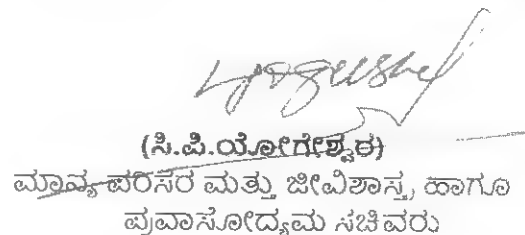 (ಸಿ.ಪಿ.ಯೋಗೇಶ್ವರ)
ಮಾನ್ಯ ಪರಿಸರ ಮತ್ತು ಜೀವಿಶಾಸ್ತ್ರ ಹಾಗೂ
ಪ್ರವಾಸೋದ್ಯಮ ಸಚಿವರು